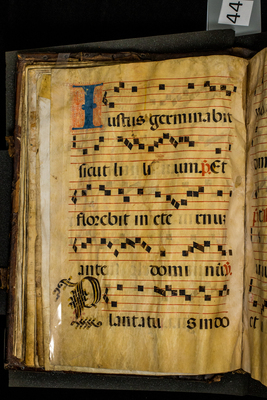 44
Iustus germinabit
sicut li li um. P. Et
florebit in ete rnu
ante domi nu
Plantatus in do